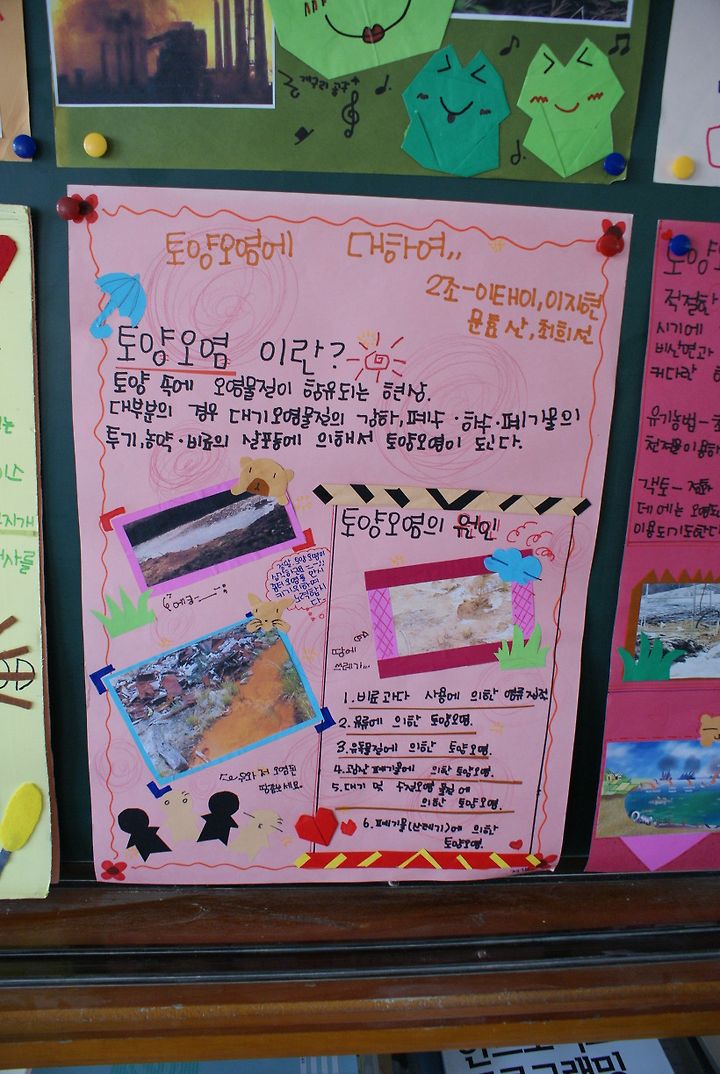 개구리 공주
토양오염에 대하여..
2조-이태이, 이지현
윤효산, 최희선
토양오염 이란?
토양 속에 오염물질이 함유되는 현상.
대부분의 경우 대기오염물질의 강하, 폐수·하수·폐기물의
투기, 농약·비료의 살포등에 의해서 토양오염이 된다.
토양오염의 원인
땅에
쓰레기...
우와 저 오염된
땅좀보세요.
1. 비료과다 사용에 의한 염류집적
2. 유류에 의한 토양오염.
3. 유독물질에 의한 토양오염.
4. 광산폐기물에 의한 토양오염.
5. 대기 및 수질오염 물질에
의한 토양오염.
6. 폐기물(쓰레기)에 의한
토양오염.
토양
적절한
시기에
비상면과
커다란
유기농법-
천적을 이용하
객토-
데에는 오염되
이용되기도한다
는
이스
지개
사를